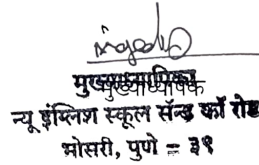 मुख्याध्यापिका
मुख्याध्यापक
न्यू इंग्लिश स्कूल सॅन्ड कॉ रोड
भोसरी, पुणे = ३९